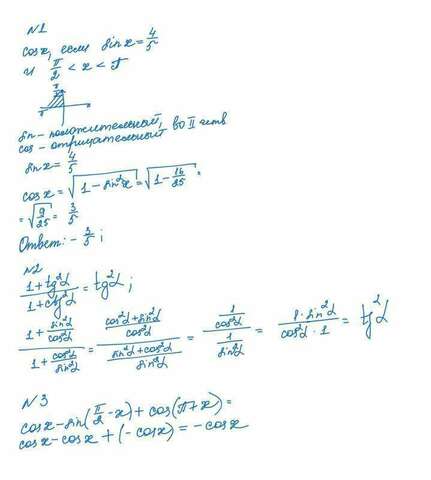 N1
cosx, если sinx = 4/5
и π/2 < x < π
sin - положительный, во II четв
cos - отрицательный
sinx = 4/5
cosx = √(1 - sin²x) = √(1 - 16/25) =
= √(9/25) = 3/5
Ответ: - 3/5 ;
N2
(1 + tg²α)/(1 + ctg²α) = tg²α ;
(1 + sin²α/cos²α)/(1 + cos²α/sin²α) = ((cos²α + sin²α)/cos²α)/((sin²α + cos²α)/sin²α) = (1/cos²α)/(1/sin²α) = (1 · sin²α)/(cos²α · 1) = tg²α
N3
cosx - sin(π/2 - x) + cos(π + x) =
cosx - cosx + (- cosx) = - cosx